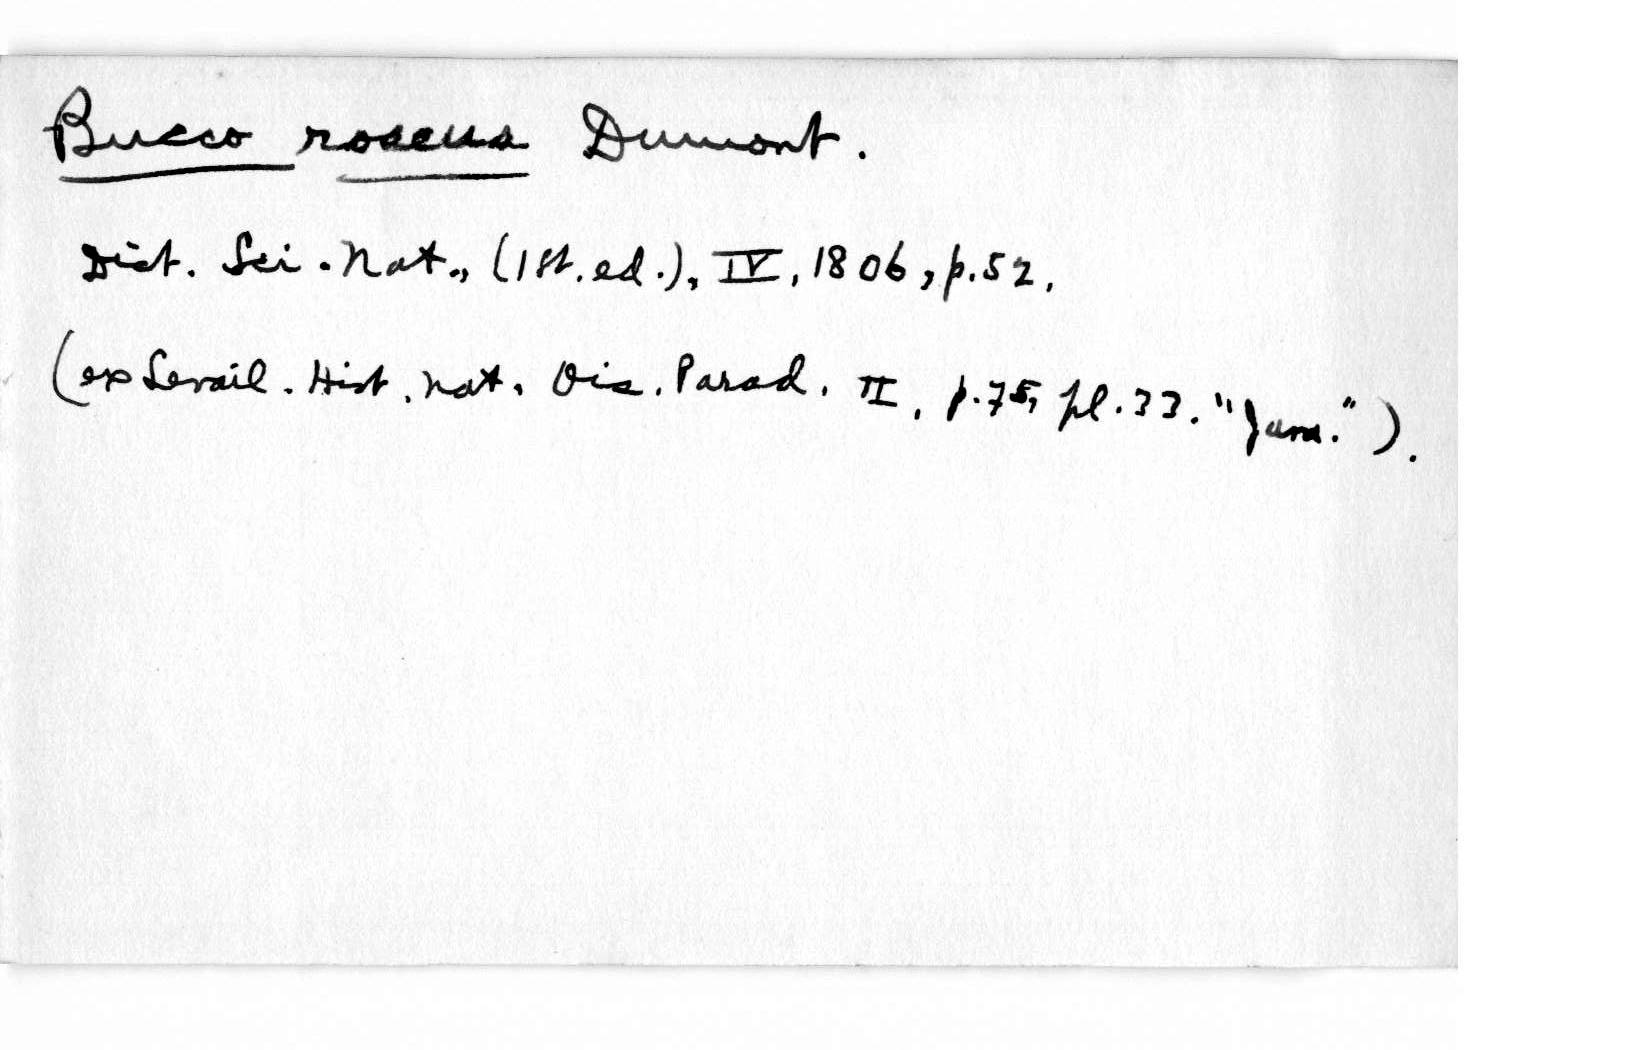 Bucco roseus Dumont.
Dict. Sci. Nat., (1st. ed.), IV, 1806, p. 52.
(ex Levail. Hist. nat. Ois. Parad. II, p. 75, pl. 33. "Java.").